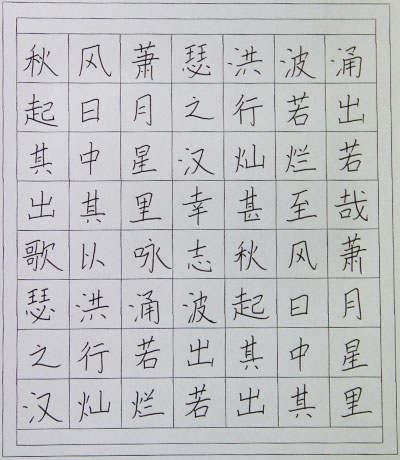 秋风萧瑟洪波涌
起日月之行若出
其中星汉灿烂若
出其里幸甚至哉
歌以咏志秋风萧
瑟洪涌波起日月
之行若出其中星
汉灿烂若出其里